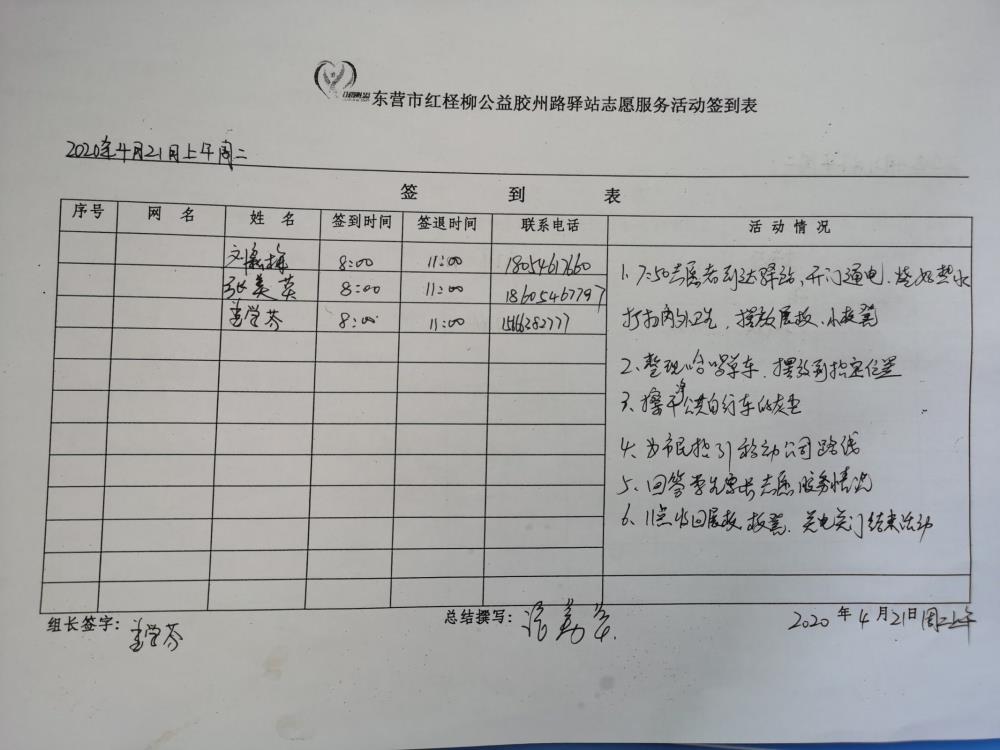 东营市红柽柳公益胶州路驿站志愿服务活动签到表
2020年4月21日上午周二
签 到 表
序号 网 名 姓 名 签到时间 签退时间 联系电话 活 动 情 况
8:00 11:00 18054617660
张美英 8:00 11:00 18605467797
姜学芬 8:00 11:00 15166282777
1、7:50志愿者到达驿站,开门通电、烧好热水
打扫内外卫生、摆放展板、小板凳
2、整理哈啰单车、摆放到指定位置
3、擦干净公共自行车的灰尘
4、为市民指引移动公司路线
5、回答学生家长志愿服务情况
6、11点收回展板、板凳、关电关门结束活动
组长签字: 姜学芬
总结撰写:
2020年4月21日周二上午